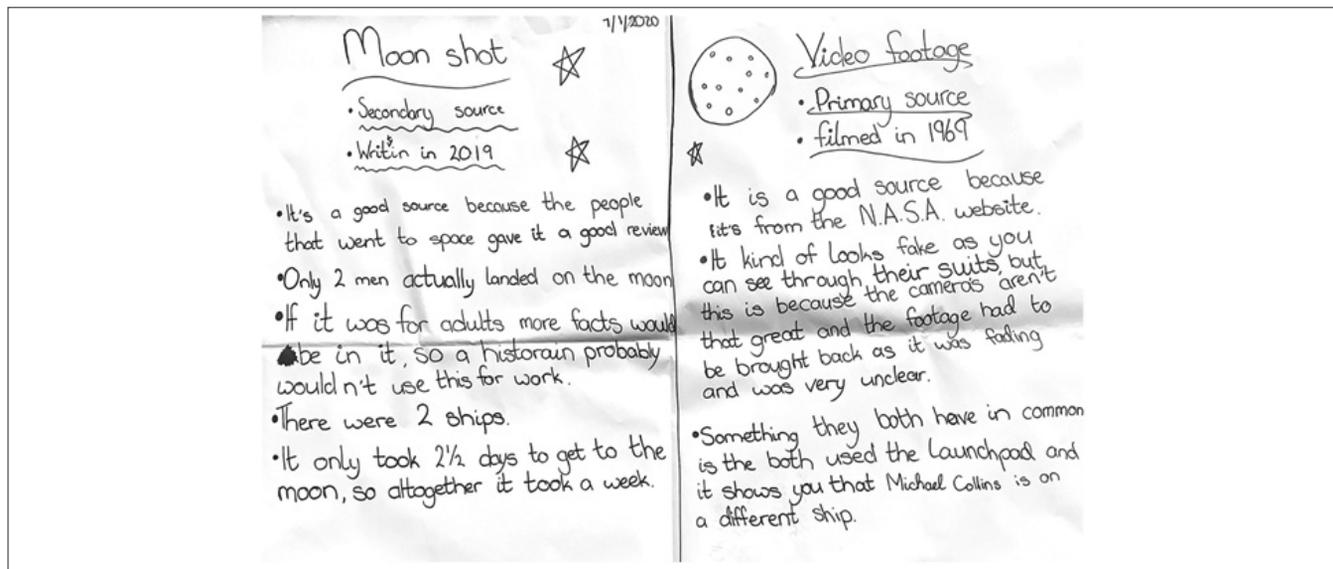 7/1/2020
Moon shot
• Secondary source
• Writin in 2019
• It's a good source because the people
that went to space gave it a good review
• Only 2 men actually landed on the moon
• If it was for adults more facts would
be in it, so a historain probably
wouldn't use this for work.
• There were 2 ships.
• It only took 2½ days to get to the
moon, so altogether it took a week.
Video footage
• Primary source
• filmed in 1969
• It is a good source because
it's from the N.A.S.A. website.
• It kind of looks fake as you
can see through their suits, but
this is because the cameras aren't
that great and the footage had to
be brought back as it was fading
and was very unclear.
• Something they both have in common
is the both used the Launchpad and
it shows you that Michael Collins is on
a different ship.